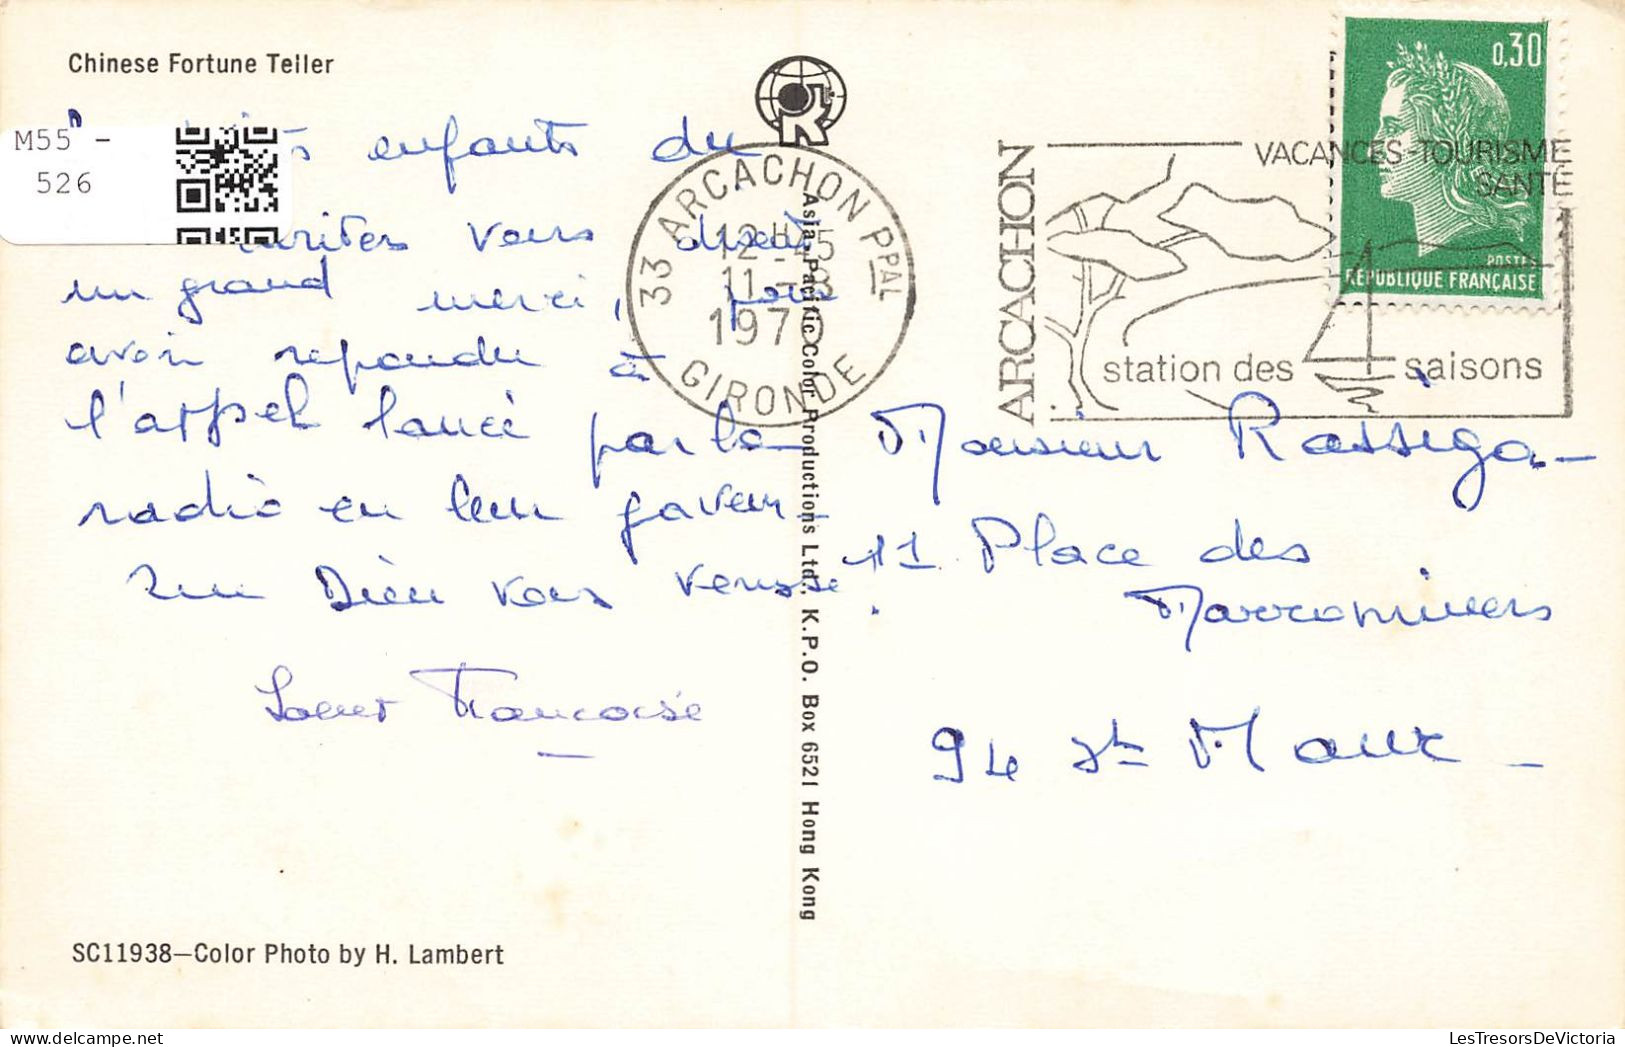 Chinese Fortune Teller
M55 -
526
enfants du
vous disent
un grand merci, pour
avoir repondu à
l'appel lancé par la
radio en leur faveur.
Que Dieu vous
Soeur Francoise
SC11938—Color Photo by H. Lambert
Asia-Pacific Color Productions Ltd., K.P.O. Box 6521 Hong Kong
33 ARCACHON PPAL
12 H45
11 - 8
1970
GIRONDE
ARCACHON
VACANCES-TOURISME
SANTE
station des saisons
0,30
POSTES
REPUBLIQUE FRANÇAISE
Monsieur Rassiga-
11 Place des
Marronniers
94 St Maur -
LesTresorsDeVictoria